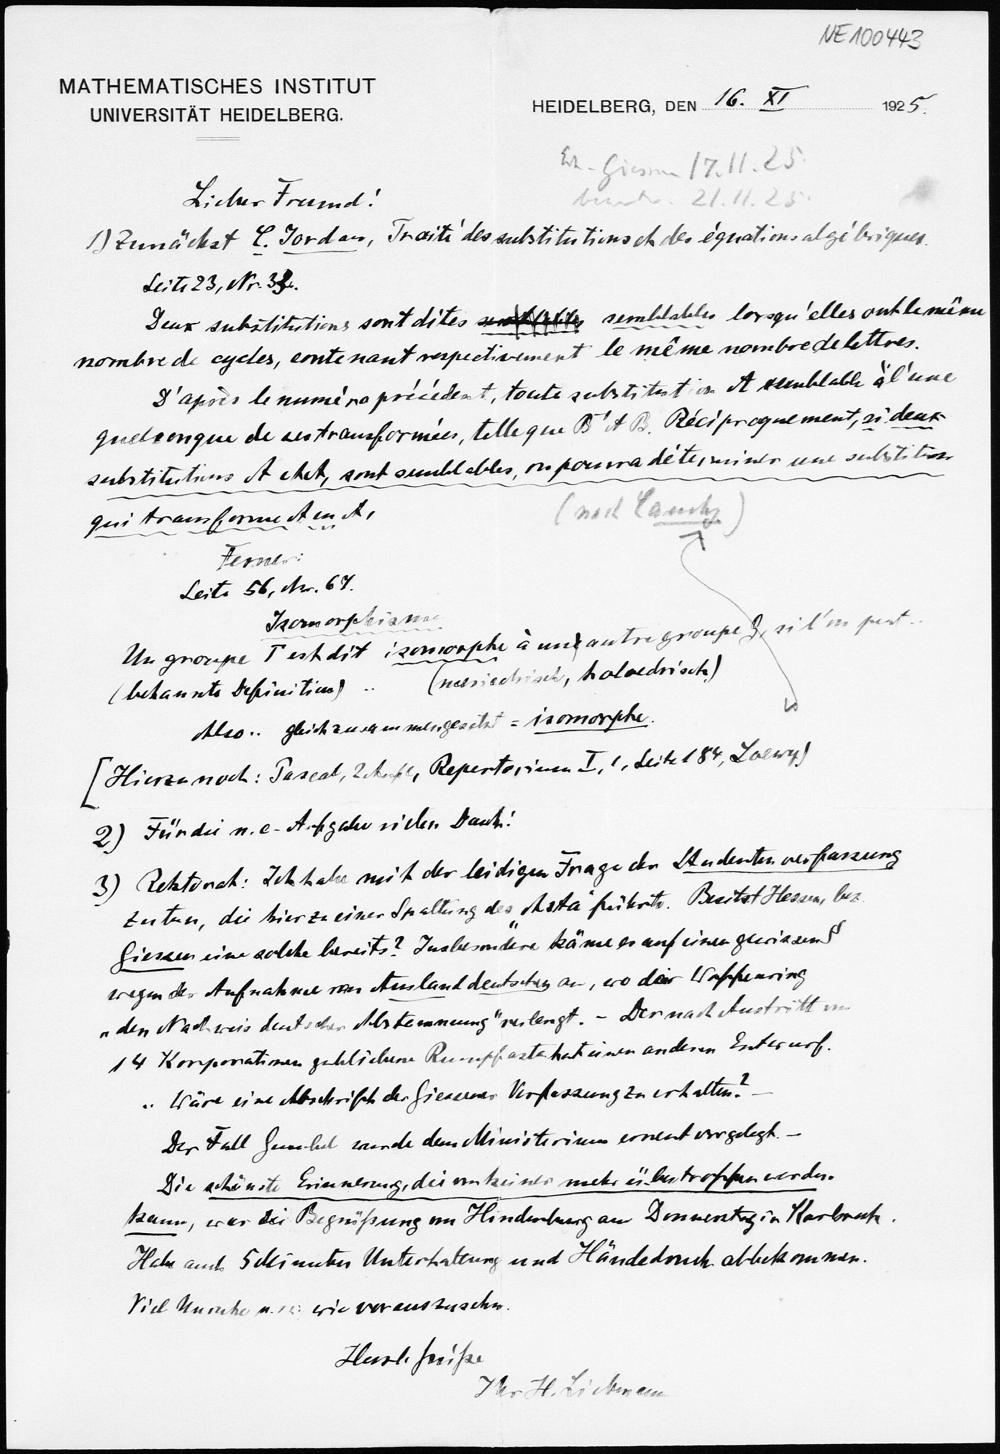 NE100443
MATHEMATISCHES INSTITUT
UNIVERSITÄT HEIDELBERG.
HEIDELBERG, DEN 16. XI 1925.
Giessen 17.11.25
21.11.25
Lieber Freund!
1) Zunächst C. Jordan, Traité des substitutions et des équations algébriques.
Seite 23, Nr.
Deux substitutions sont dites semblables lorsqu'elles ont le même
nombre de cycles, contenant respectivement le même nombre de lettres.
D'après le numéro précédent, toute substitution A semblable à l'une
quelconque de ses transformées, telle que B⁻¹AB. Réciproquement, si deux
substitutions A et A₁ sont semblables, on pourra déterminer une substitution
qui transforme A en A₁
(nach Cauchy)
Ferner:
Seite 56, Nr. 67.
Isomorphisme
Un groupe Γ est dit isomorphe à un autre groupe G, si l'on peut ..
(bekannte Definition) .. (meriedrisch, holoedrisch)
Also .. gleichzusammengesetzt = isomorphe.
[Hierzu noch: Pascal, Repertorium I, 1, Seite 184, Loewy)
2) Für die n. e- Aufgabe vielen Dank!
3) Rektorat: Ich habe mit der leidigen Frage der Studentenverfassung
zu tun, die hier zu einer Spaltung des „Asta" führte. Besitzt Hessen, bez.
Giessen eine solche bereits? Insbesondere käme es auf einen gewissen §
wegen der Aufnahme von Auslanddeutschen an, wo der Waffenring
„den Nachweis deutscher Abstammung" verlangt. – Der nach Austritt von
14 Korporationen gebliebene Rumpfasta hat einen anderen Entwurf.
.. Wäre eine Abschrift der Giessener Verfassung zu erhalten? –
Der Fall Gumbel wurde dem Ministerium erneut vorgelegt. –
Die schönste Erinnerung, die von keiner mehr übertroffen werden
kann, war die Begrüßung von Hindenburg am Donnerstag in Karlsruhe.
Habe auch 5 Minuten Unterhaltung und Händedruck abbekommen.
Viel Unruhe wie vorauszusehn.
Herzl. Grüße
Ihr H. Liebmann